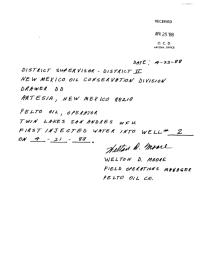 RECEIVED
APR 25 '88
O. C. D.
ARTESIA, OFFICE
DATE: 4-23-88
DISTRICT SUPERVISOR - DISTRICT II
NEW MEXICO OIL CONSERVATION DIVISION
DRAWER DD
ARTESIA, NEW MEXICO 88210
PELTO OIL, OPERATOR
TWIN LAKES SAN ANDRES WFU
FIRST INJECTED WATER INTO WELL # 2
ON 4 - 21 - 88.
Welton D. Moore
WELTON D. MOORE
FIELD OPERATIONS MANAGER
PELTO OIL CO.